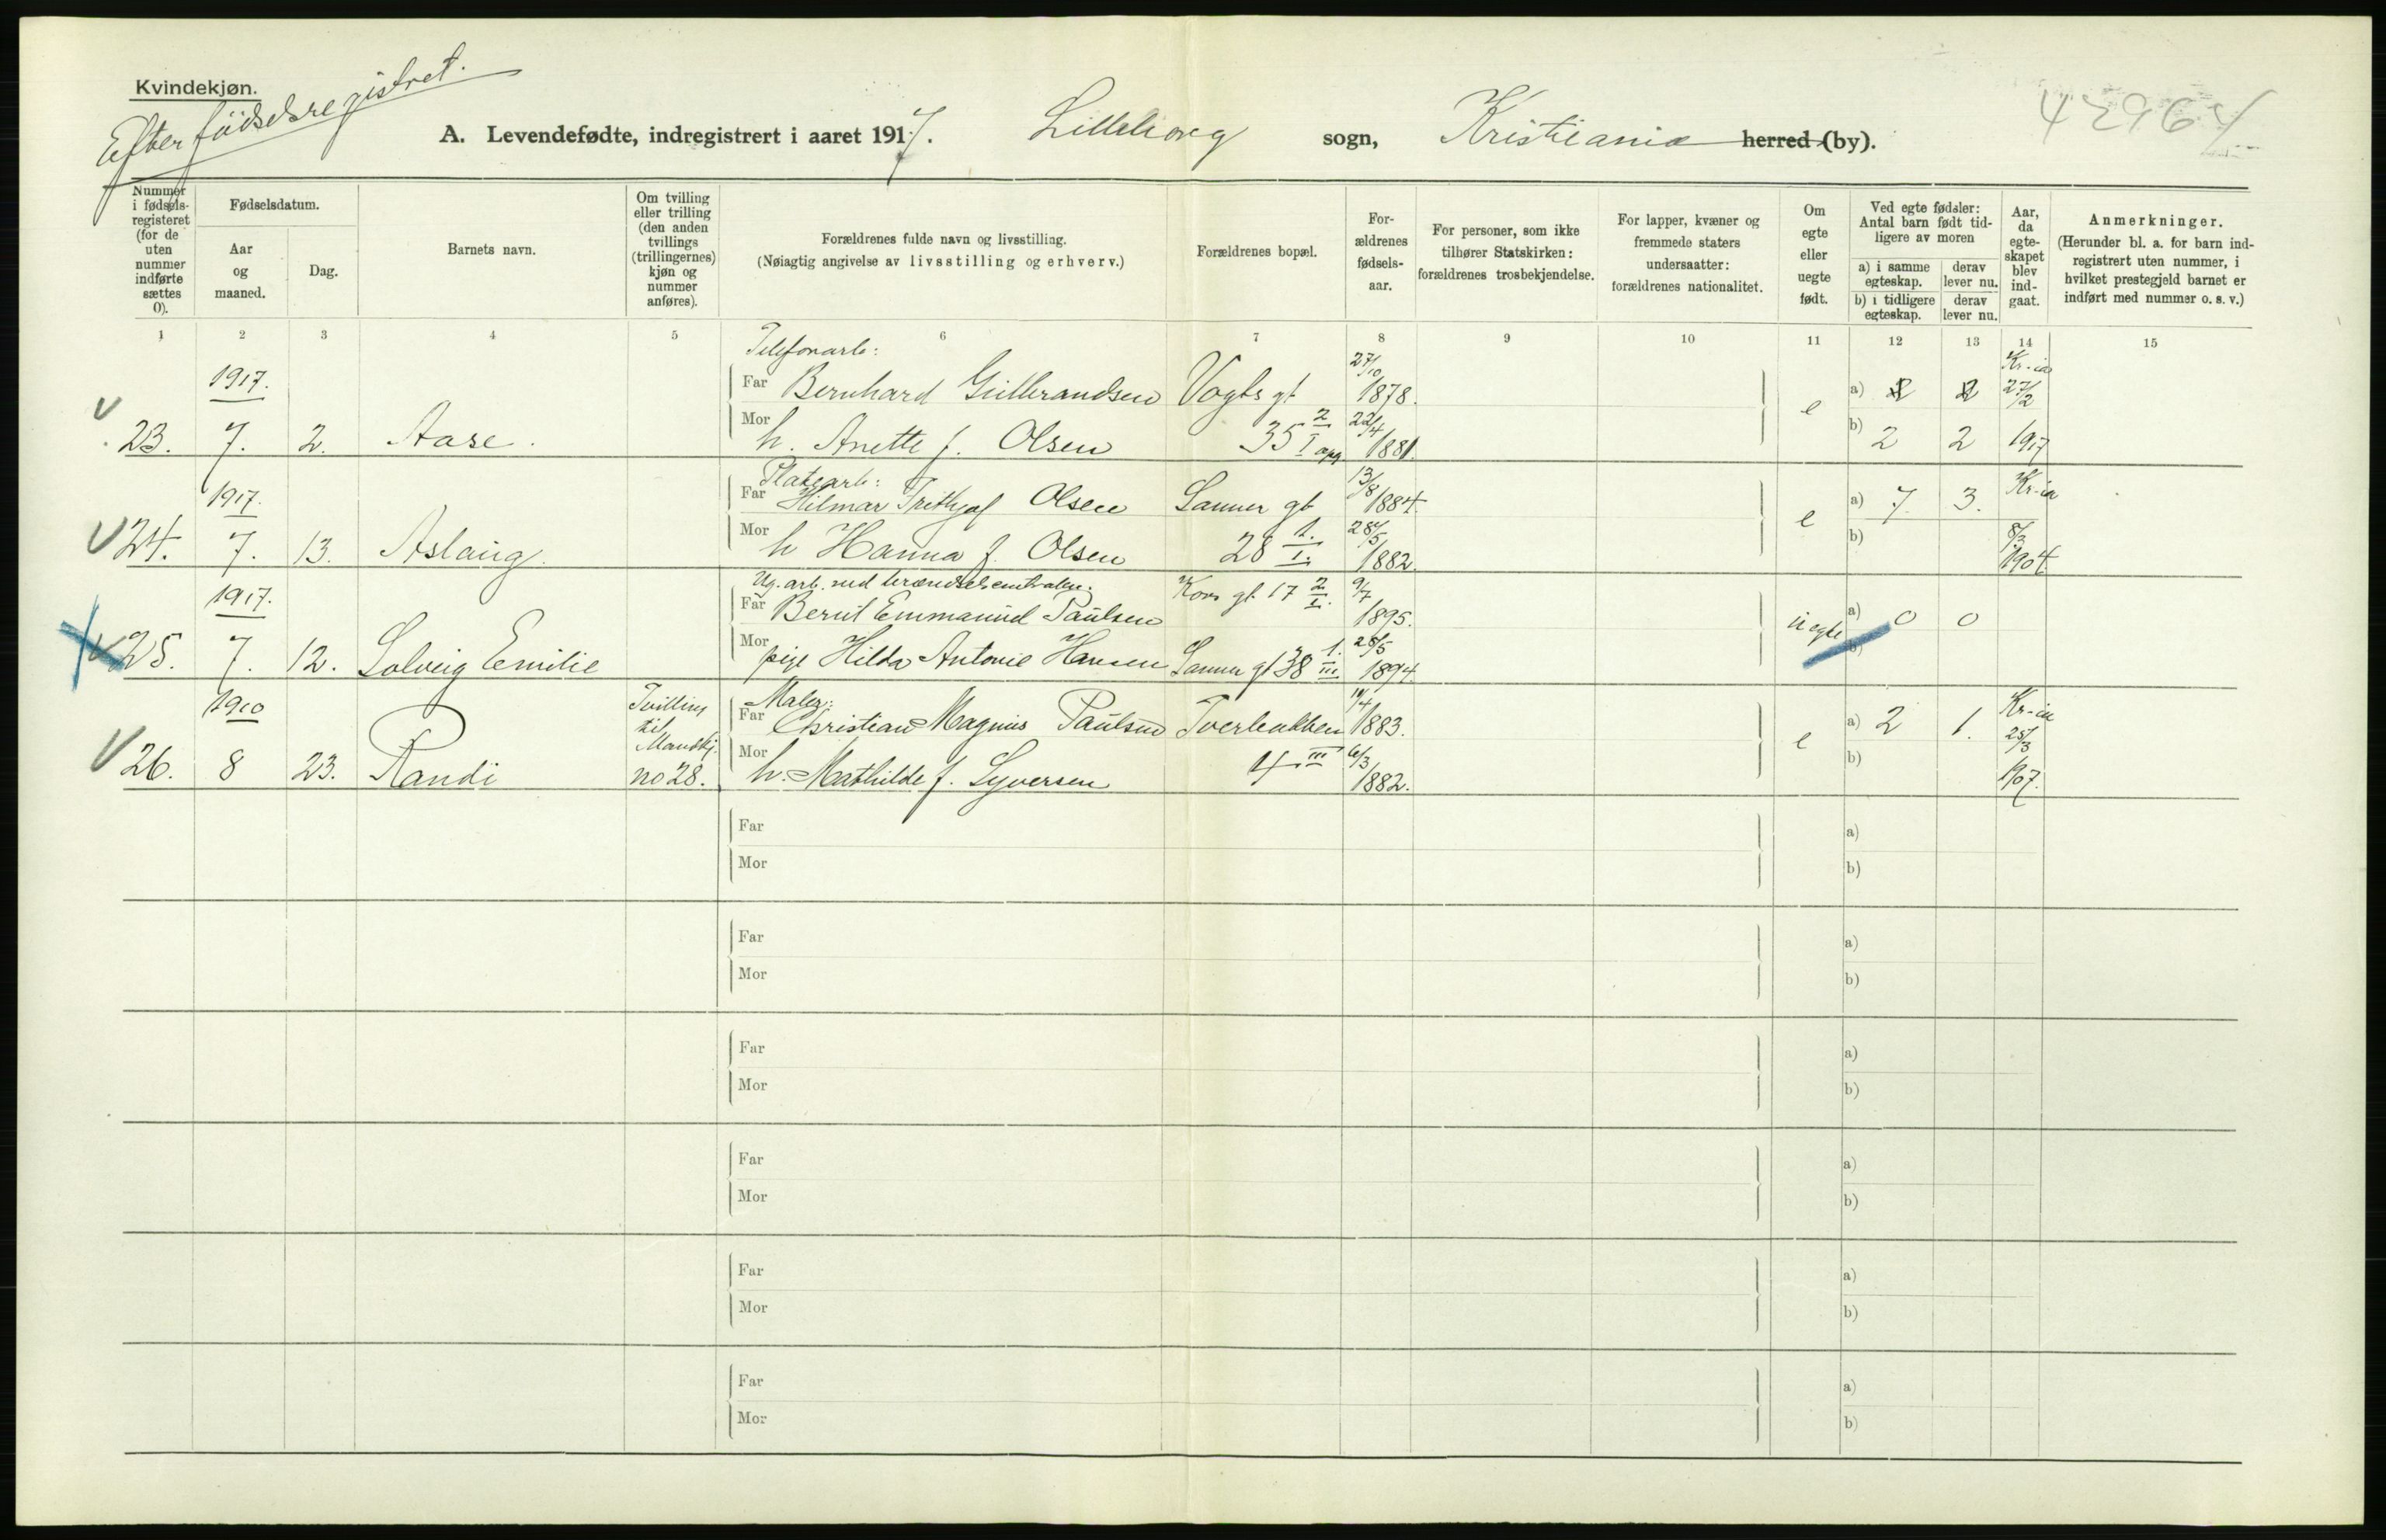 Kvindekjøn.
Efter fødselsregistret.
A. Levendefødte, indregistrert i aaret 1917. Lilleborg sogn, Kristiania herred (by).
Nummer i fødselsregisteret (for de uten nummer indførte sættes 0).
Fødselsdatum.
Aar og maaned.
Dag.
Barnets navn.
Om tvilling eller trilling (den anden tvillings (trillingernes) kjøn og nummer anføres).
Forældrenes fulde navn og livsstilling.
(Nøiagtig angivelse av livsstilling og erhverv.)
Forældrenes bopæl.
Forældrenes fødselsaar.
For personer, som ikke tilhører Statskirken: forældrenes trosbekjendelse.
For lapper, kvæner og fremmede staters undersaatter: forældrenes nationalitet.
Om egte eller uegte født.
Ved egte fødsler: Antal barn født tidligere av moren
a) i samme egteskap. derav lever nu.
b) i tidligere egteskap. derav lever nu.
Aar, da egteskapet blev indgaat.
Anmerkninger.
(Herunder bl. a. for barn indregistrert uten nummer, i hvilket prestegjeld barnet er indført med nummer o. s. v.)
1 2 3 4 5 6 7 8 9 10 11 12 13 14 15
Telefonarb: 27/10 Kr.ia
1917. Far Bernhard Gulbrandsen Vogts gt 1878. a) 27/2
23. 7. 2. Aase. Mor h. Anette f. Olsen 35 2/I opg 22/4 1881. e b) 2 2 1917
Platearb: 13/8 Kr.ia
1917. Far Hilmar Frithjof Olsen Sanner gt 1884. a) 7 3.
24. 7. 13. Aslaug. Mor h Hanna f. Olsen 28 1./I. 28/5 1882. e b) 8/3 1904
Ug. arb. ved brændselscentralen.
1917. Far Bernt Emmanuel Paulsen Kors gt 17 2/I. 9/7 1895. a) 0 0
25. 7. 12. Solveig Emilie Mor pige Hilda Antonie Hansen Sanner gt 38 1./III. 28/5 1894. uegte b)
Maler:
1910 Tvilling til Mandkj. no 28. Far Christian Magnus Paulsen Tverbakken 1883. a) 2 1. Kr.ia 25/3
26. 8 23. Randi Mor h. Mathilde f. Syversen 4 III 6/3 1882. e b) 1907.
Far a)
Mor b)
Far a)
Mor b)
Far a)
Mor b)
Far a)
Mor b)
Far a)
Mor b)
Far a)
Mor b)